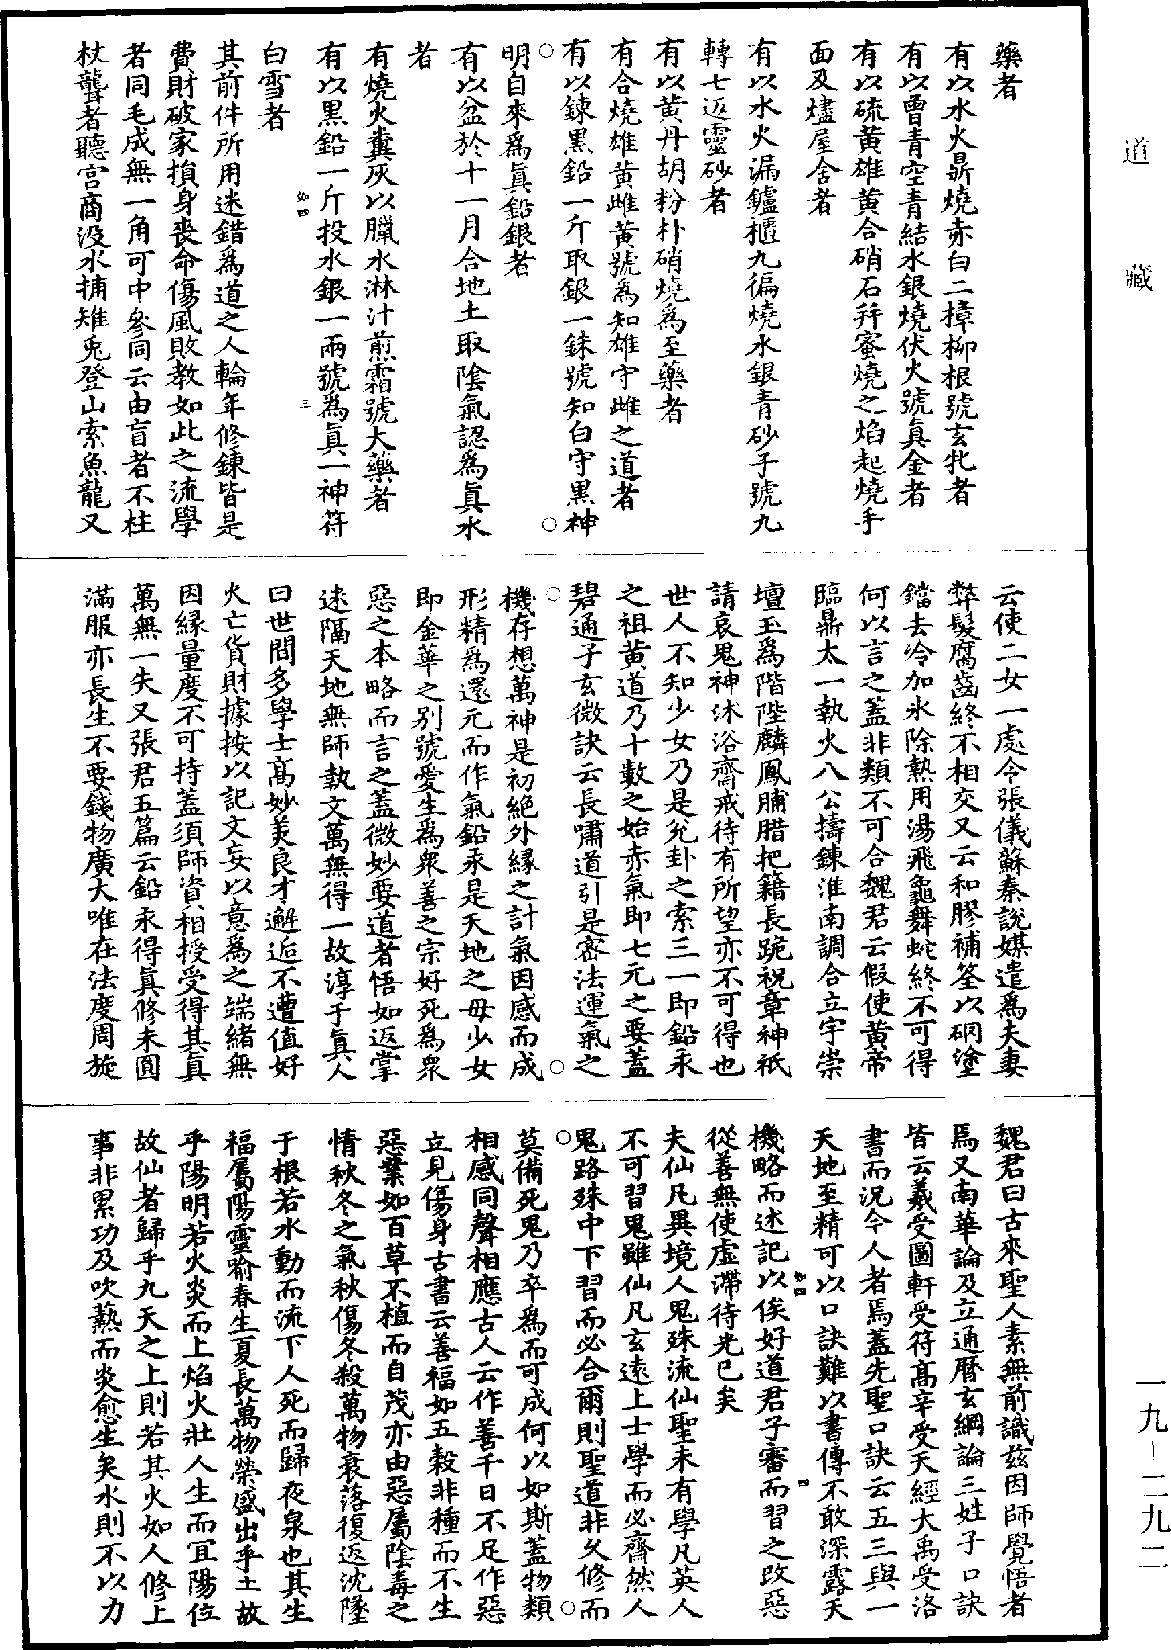 道藏
藥者
有以水火鼎燒赤白二樟柳根號玄牝者
有以曾青空青結水銀燒伏火號真金者
有以硫黃雄黃合硝石并蜜燒之焰起燒手
面及燼屋舍者
有以水火漏鑪櫃九徧燒水銀青砂子號九
轉七返靈砂者
有以黃丹胡粉朴硝燒為至藥者
有合燒雄黃雌黃號為知雄守雌之道者
有以鍊黑鉛一斤取銀一銖號知白守黑神
明自來為真鉛銀者
有以盆於十一月合地土取陰氣認為真水
者
有燒火糞灰以臘水淋汁煎霜號大藥者
有以黑鉛一斤投水銀一兩號為真一神符
白雪者
其前件所用迷錯為道之人輪年修鍊皆是
費財破家損身喪命傷風敗教如此之流學
者同毛成無一角可中參同云由盲者不柱
杖聾者聽宮商沒水捕雉兎登山索魚龍又
云使二女一處令張儀蘇秦說媒遣為夫妻
弊髮腐齒終不相交又云和膠補釜以硇塗
鐺去冷加氷除熱用湯飛龜舞蛇終不可得
何以言之蓋非類不可合魏君云假使黃帝
臨鼎太一執火八公擣鍊淮南調合立宇崇
壇玉為階陛麟鳳脯腊把籍長跪祝章神祇
請哀鬼神沐浴齋戒待有所望亦不可得也
世人不知少女乃是兊卦之索三一即鉛汞
之祖黃道乃十數之始赤氣即七元之要蓋
碧通子玄微訣云長嘯道引是密法運氣之
機存想萬神是初絕外緣之計氣因感而成
形精為還元而作氣鉛汞是天地之母少女
即金華之別號愛生為衆善之宗好死為衆
惡之本略而言之蓋微妙要道者悟如返掌
迷隔天地無師執文萬無得一故淳于真人
曰世間多學士高妙美良才邂逅不遭值好
火亡貨財據按以記文妄以意為之端緒無
因緣量度不可持蓋須師資相授受得其真
萬無一失又張君五篇云鉛汞得真修未圓
滿服亦長生不要錢物廣大唯在法度周旋
魏君曰古來聖人素無前識茲因師覺悟者
焉又南華論及立通曆玄綱論三姓子口訣
皆云羲受圖軒受符高辛受天經大禹受洛
書而況今人者焉蓋先聖口訣云五三與一
天地至精可以口訣難以書傳不敢深露天
機略而述記以俟好道君子審而習之改惡
從善無使虛滯待兊巳矣
夫仙凡異境人鬼殊流仙聖未有學凡英人
不可習鬼雖仙凡玄遠上士學而必齊然人
鬼路殊中下習而必合爾則聖道非久修而
莫備死鬼乃卒為而可成何以如斯蓋物類
相感同聲相應古人云作善千日不足作惡
立見傷身古書云善福如五穀非種而不生
惡棄如百草不植而自茂亦由惡屬陰毒之
情秋冬之氣秋傷冬殺萬物衰落復返沈墜
于根若水動而流下人死而歸夜泉也其生
福屬陽靈喻春生夏長萬物榮盛出乎土故
乎陽明若火炎而上焰火壯人生而宜陽位
故仙者歸乎九天之上則若其火如人修上
事非累功及吹熱而炎愈生矣水則不以力
一九－二九二